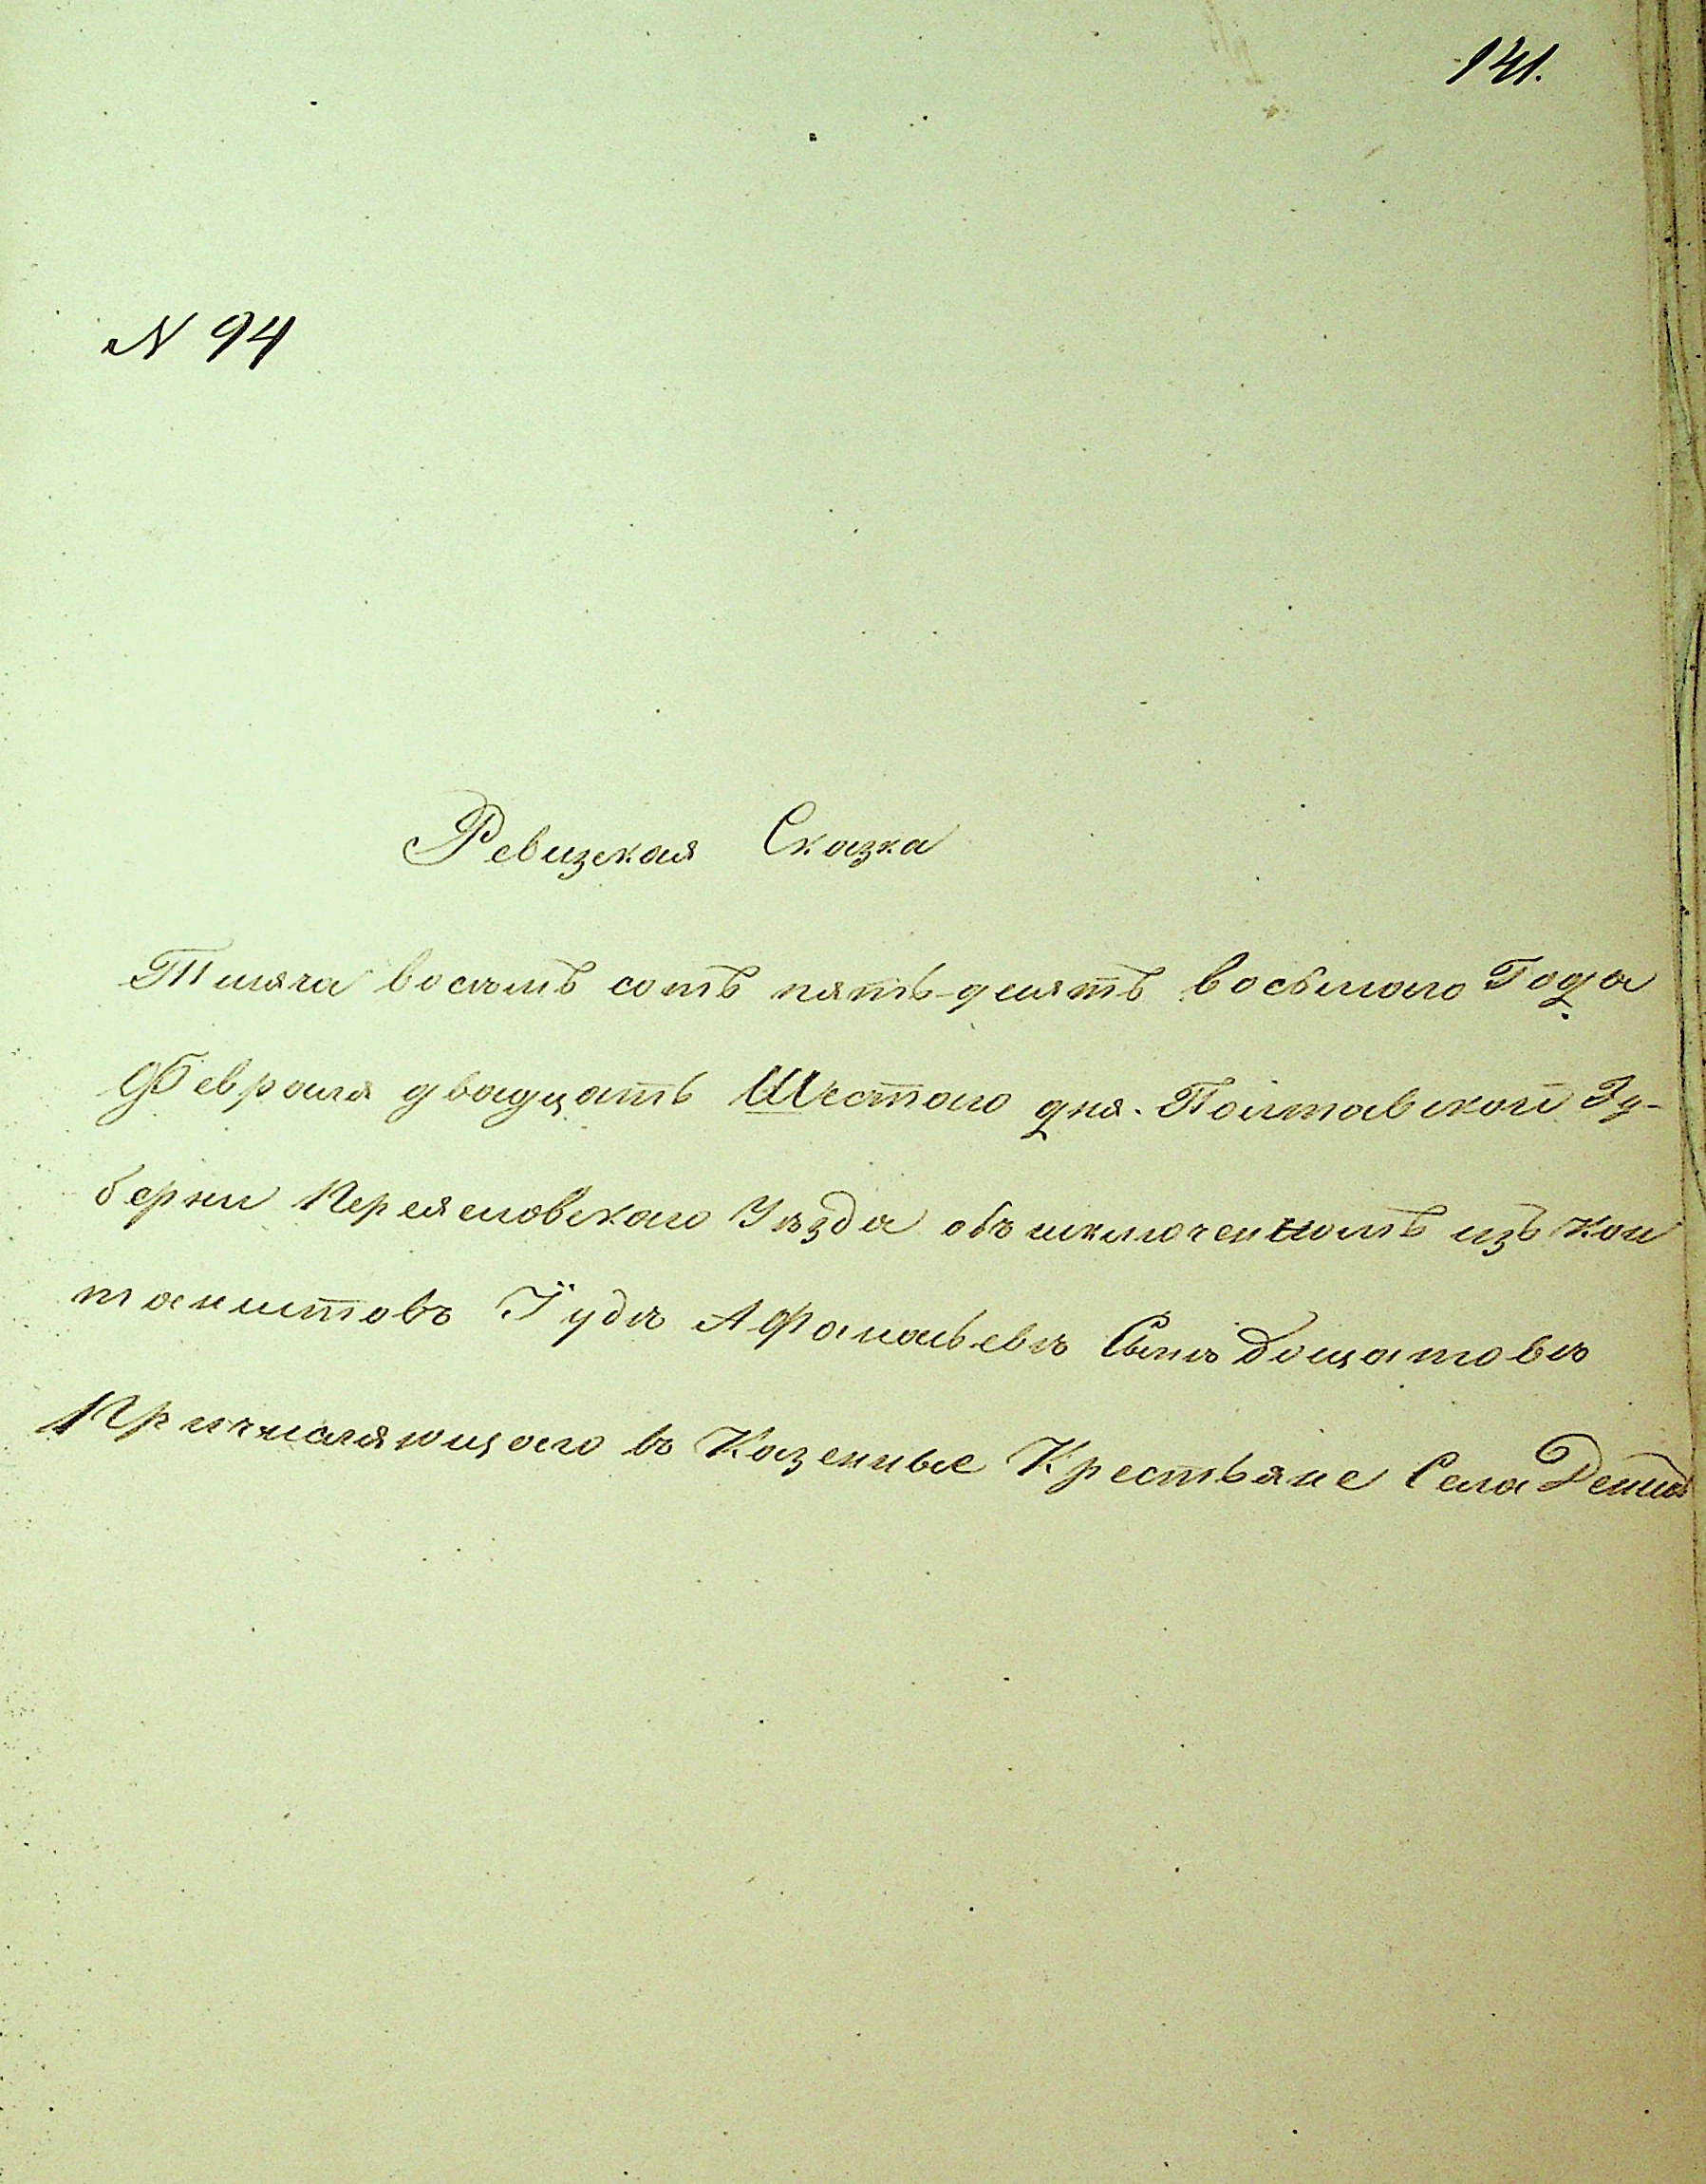 141.
N 94
Ревизская Сказка
Тисяча восѣмъ сотъ пять-десятъ восьмаго Года
Февраля двадцать Шестаго дня. Полтавской Гу-
берни Переясловскаго Уѣзда объ исключенномъ изъ кан
танистовъ Іудѣ Афанасьевѣ Сынѣ
Причисляющаго въ Казенные Крестьяне Села